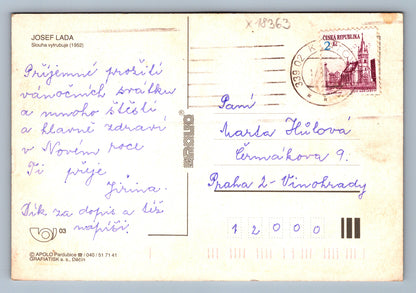 x 18363
JOSEF LADA
Slouha vytrubuje (1952)
ČESKÁ REPUBLIKA
2 Kč
339 02
Příjemné prožití
vánočních svátků
a mnoho štěstí
a hlavně zdraví
v Novém roce
Ti přeje
Jiřina.
Dík za dopis a též
napíši.
APOLO
Paní
Marta Hůlová
Čermákova 9.
Praha 2 - Vinohrady
12000
03
© APOLO Pardubice ☎ / 040 / 51 71 41
GRAFIATISK a. s., Děčín